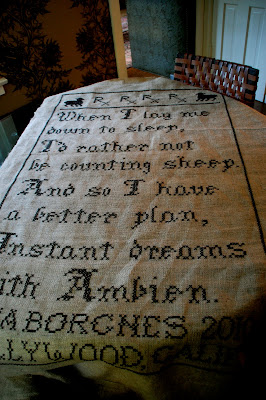 Rx Rx Rx Rx
When I lay me
down to sleep,
I'd rather not
be counting sheep.
And so I have
a better plan,
Instant dreams
ith Ambien.
ABORGNES 201
LLYWOOD, CALIF